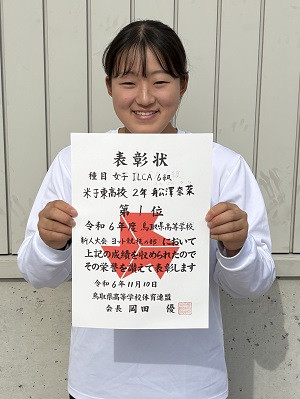 表彰状
種目 女子 ILCA 6級
米子東高校 2年 船澤泰菜
第1位
令和6年度 鳥取県高等学校
新人大会 ヨット競技の部 において
上記の成績を収められたので
その栄誉を讃えて表彰します
令和6年11月10日
鳥取県高等学校体育連盟
会長 岡田 優